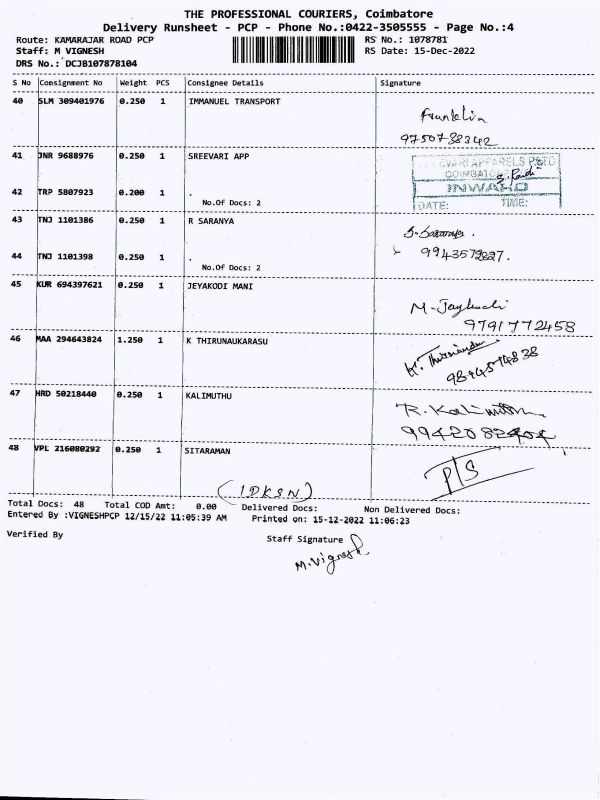 THE PROFESSIONAL COURIERS, Coimbatore
Delivery Runsheet - PCP - Phone No.:0422-3505555 - Page No.:4
Route: KAMARAJAR ROAD PCP RS No.: 1078781
Staff: M VIGNESH RS Date: 15-Dec-2022
DRS No.: DCJB107878104
S No Consignment No Weight PCS Consignee Details Signature
40 SLM 309401976 0.250 1 IMMANUEL TRANSPORT
Franklin
9750738342
41 JNR 9688976 0.250 1 SREEVARI APP
EVARI APPARELS
COIMBATO
42 TRP 5807923 0.200 1 .
INWARD
No.Of Docs: 2
DATE: TIME:
43 TNJ 1101386 0.250 1 R SARANYA
44 TNJ 1101398 0.250 1 .
No.Of Docs: 2
45 KUR 694397621 0.250 1 JEYAKODI MANI
9791772458
46 MAA 294643824 1.250 1 K THIRUNAUKARASU
47 HRD 50218440 0.250 1 KALIMUTHU
R. Kalimuthu
48 VPL 216080292 0.250 1 SITARAMAN
P/S
(IDKSN)
Total Docs: 48 Total COD Amt: 0.00 Delivered Docs: Non Delivered Docs:
Entered By :VIGNESHPCP 12/15/22 11:05:39 AM Printed on: 15-12-2022 11:06:23
Verified By Staff Signature
M. Vignesh